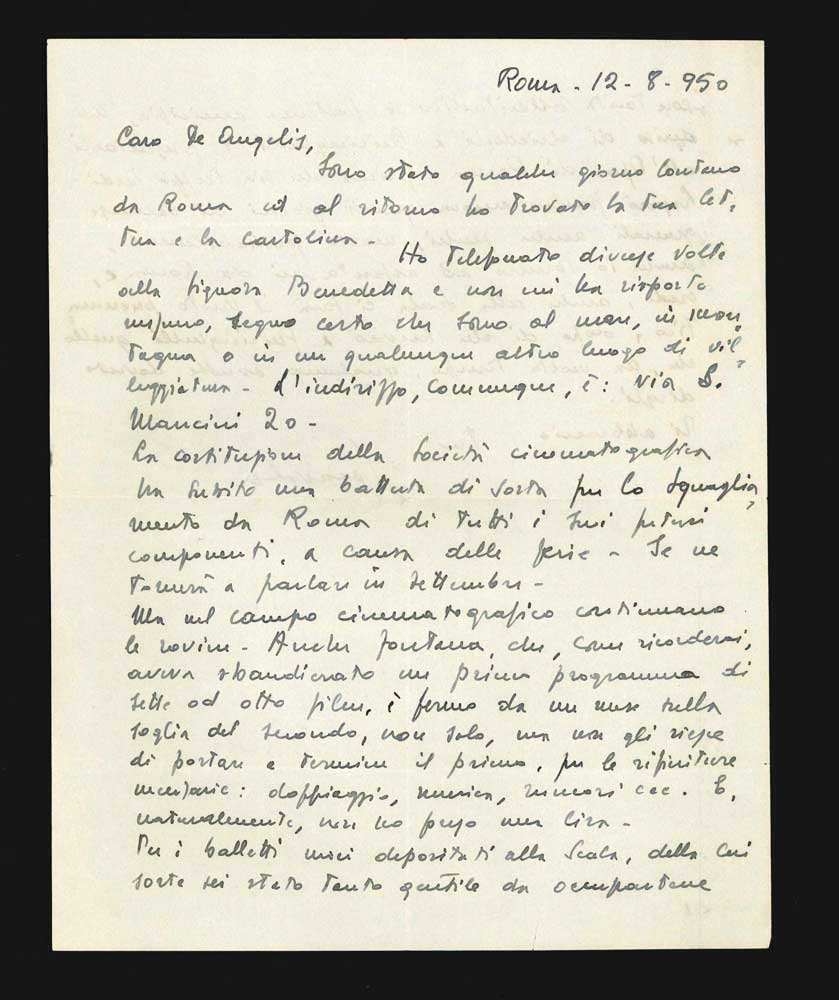 Roma - 12 - 8 - 950
Caro De Angelis,
Sono stato qualche giorno lontano
da Roma ed al ritorno ho trovato la tua let-
tera e la cartolina -
Ho telefonato diverse volte
alla Signora Benedetta e non mi ha risposto
nessuno, segno certo che sono al mare, in mon-
tagna o in un qualunque altro luogo di vil-
leggiatura - L'indirizzo, comunque, è: Via S.
Mancini 20 -
La costituzione della Società cinematografica
ha subito una battuta di sosta per lo squaglia-
mento da Roma di tutti i suoi futuri
componenti, a causa delle ferie - Se ne
tornerà a parlare in settembre -
Ma nel campo cinematografico continuano
le rovine - Anche Fontana, che, come ricorderai,
aveva sbandierato un primo programma di
sette od otto films, è fermo da un mese sulla
soglia del secondo, non solo, ma non gli riesce
di portare a termine il primo, per le rifiniture
necessarie: doppiaggio, musica, rumori ecc. E,
naturalmente, non ho preso una lira -
Per i balletti miei depositati alla Scala, della cui
sorte sei stato tanto gentile da occupartene